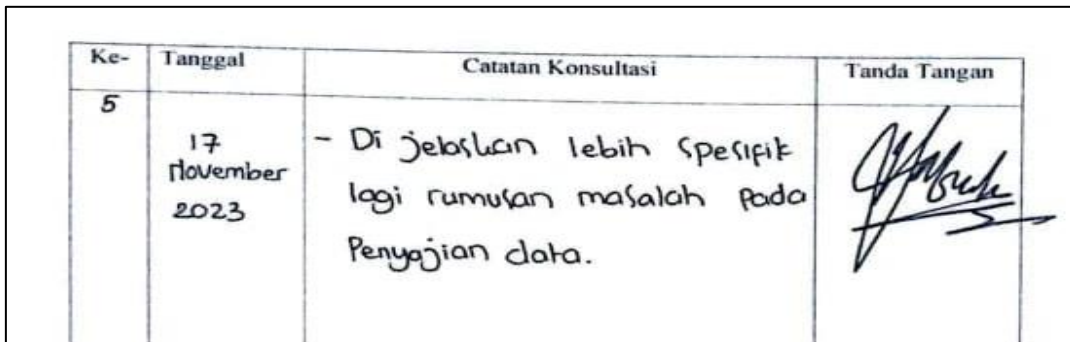 Ke- Tanggal Catatan Konsultasi Tanda Tangan
5
17 November 2023
- Di jelaskan lebih spesifik
lagi rumusan masalah pada
Penyajian data.